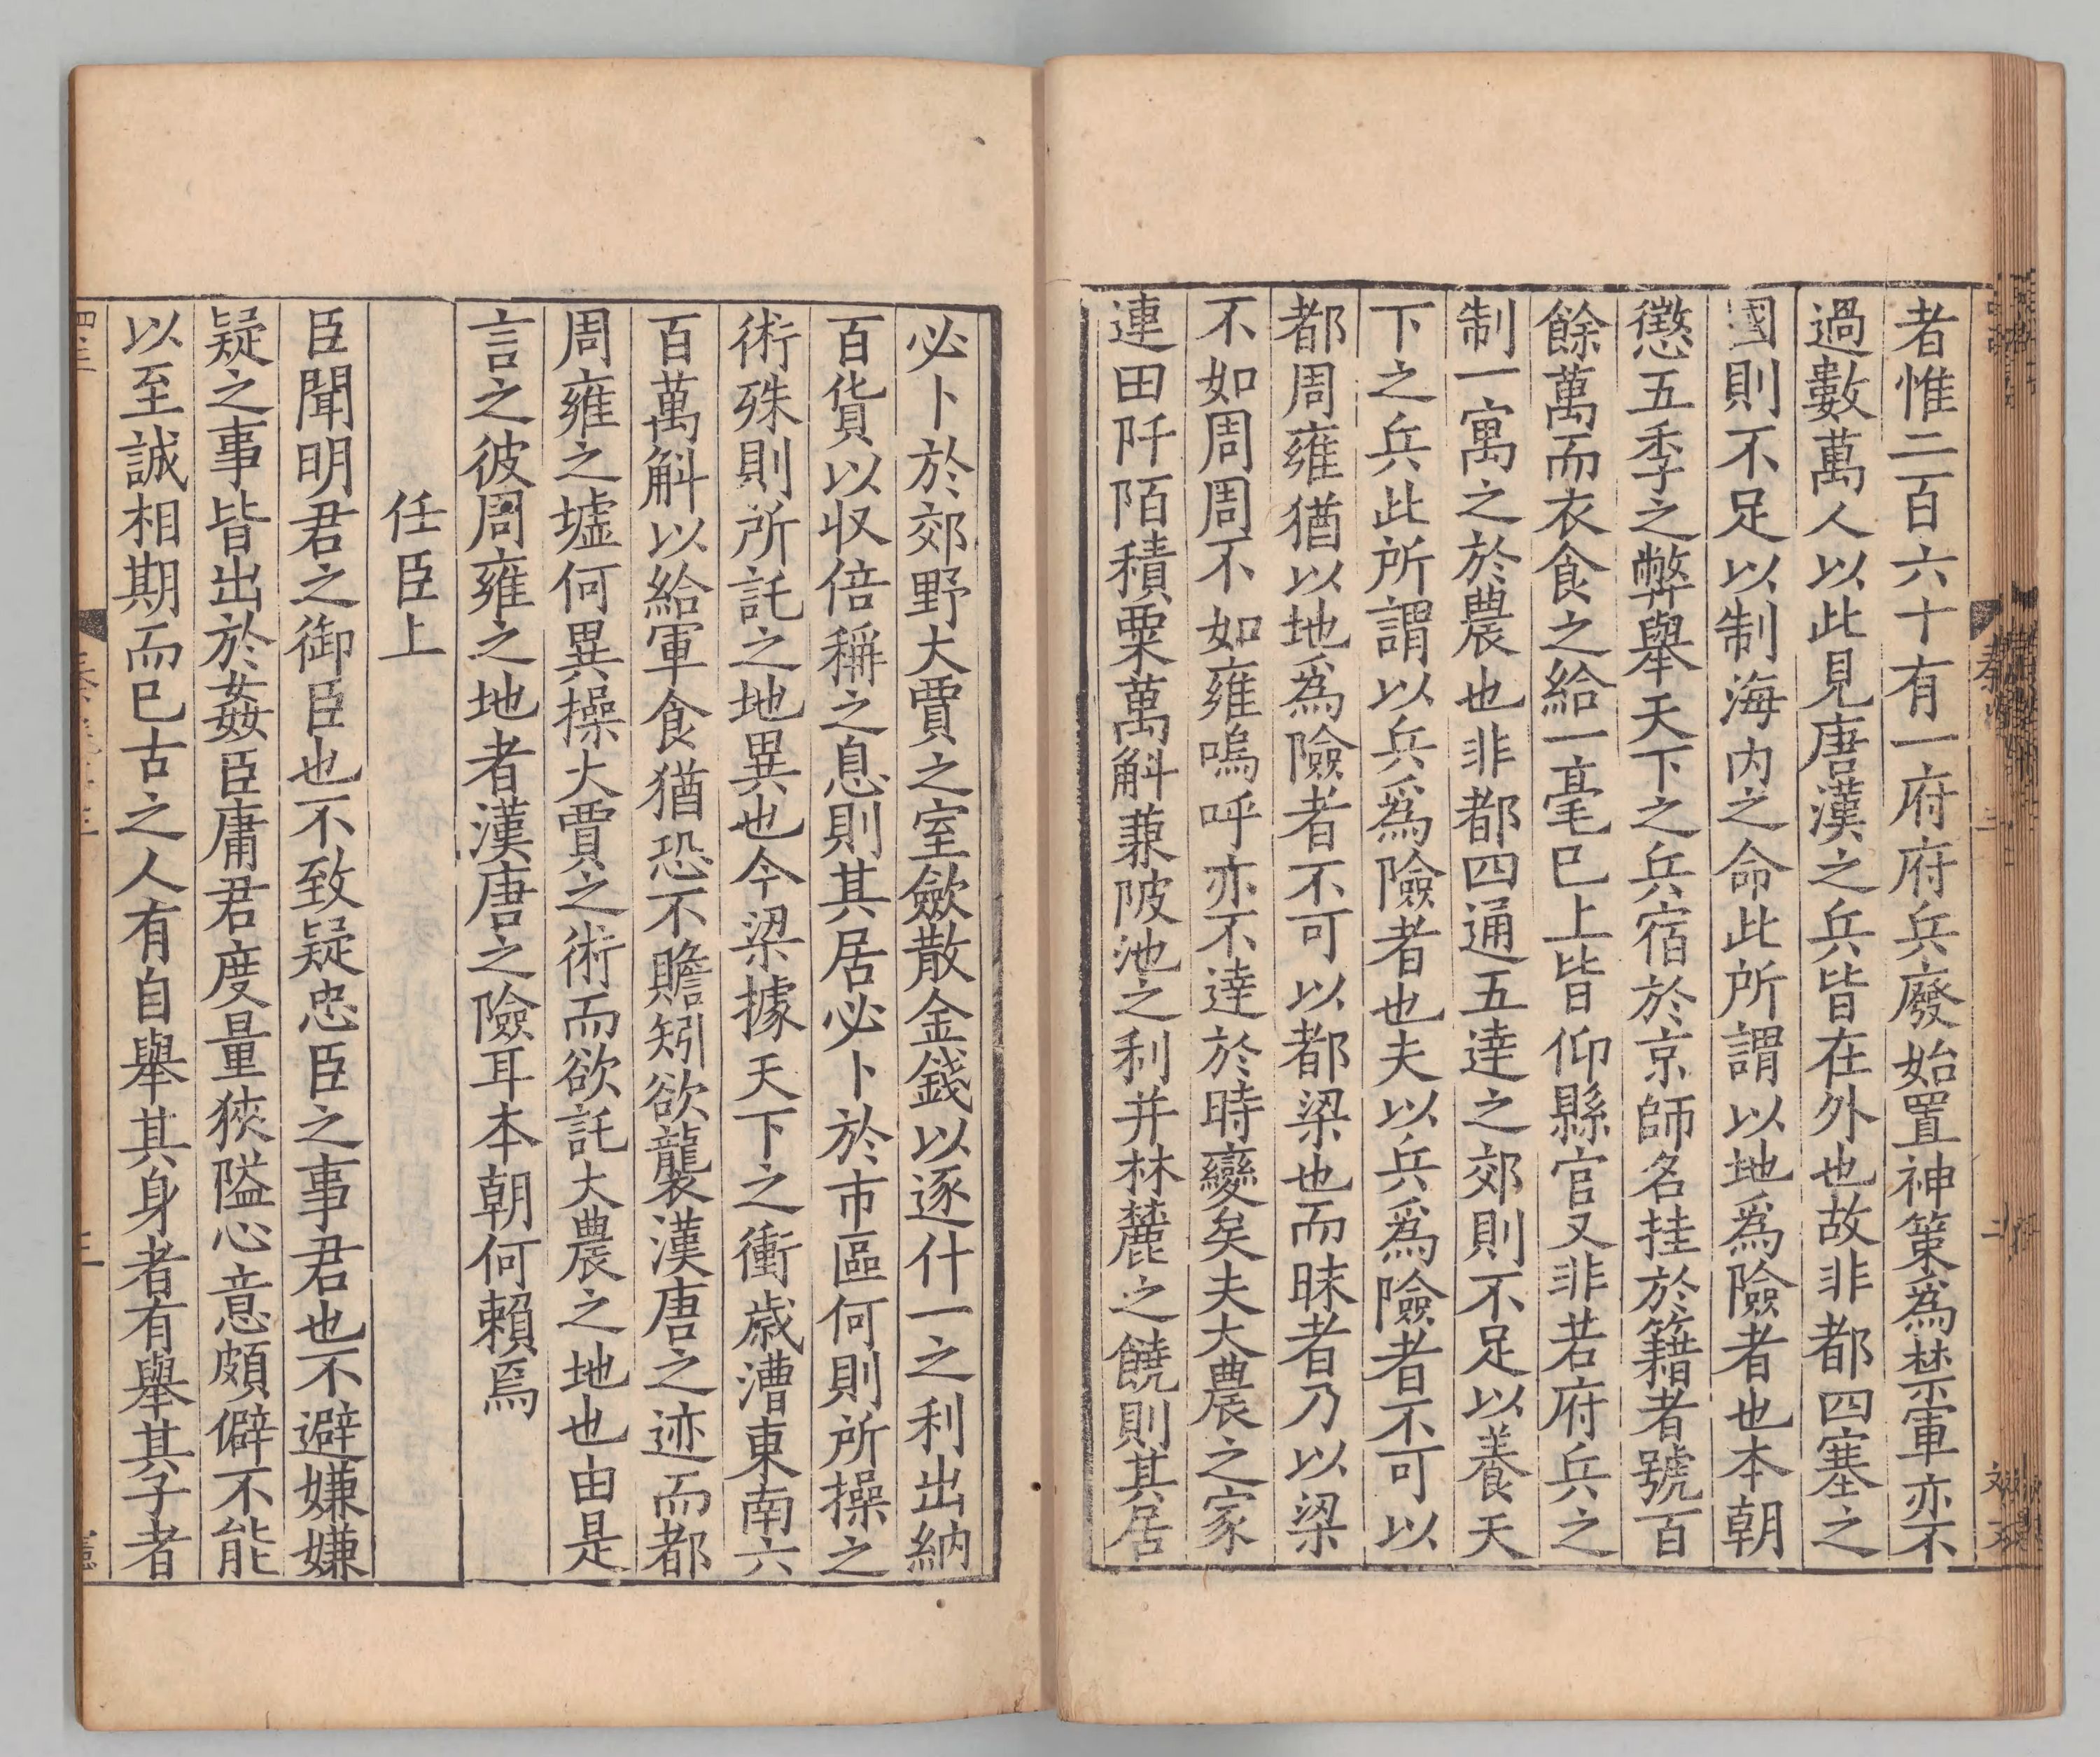 者惟二百六十有一府府兵廢始置神策爲禁軍亦不
過數萬人以此見唐漢之兵皆在外也故非都四塞之
國則不足以制海内之命此所謂以地爲險者也本朝
懲五季之弊舉天下之兵宿於京師名挂於籍者號百
餘萬而衣食之給一毫巳上皆仰縣官又非若府兵之
制一寓之於農也非都四通五達之郊則不足以養天
下之兵此所謂以兵爲險者也夫以兵爲險者不可以
都周雍猶以地爲險者不可以都梁也而昧者乃以梁
不如周周不如雍嗚呼亦不達於時變矣夫大農之家
連田阡陌積粟萬斛蒹陂池之利并林麓之饒則其居
必卜於郊野大賈之室斂散金錢以逐什一之利出納
百貨以收倍稱之息則其居必卜於市區何則所操之
術殊則所託之地異也今梁據天下之衝歳漕東南六
百萬斛以給軍食猶恐不贍矧欲襲漢唐之迹而都
周雍之墟何異操大賈之術而欲託大農之地也由是
言之彼周雍之地者漢唐之險耳本朝何賴焉
任臣上
臣聞明君之御臣也不致疑忠臣之事君也不避嫌嫌
疑之事皆出於姦臣庸君度量狹隘心意頗僻不能
以至誠相期而巳古之人有自舉其身者有舉其子者